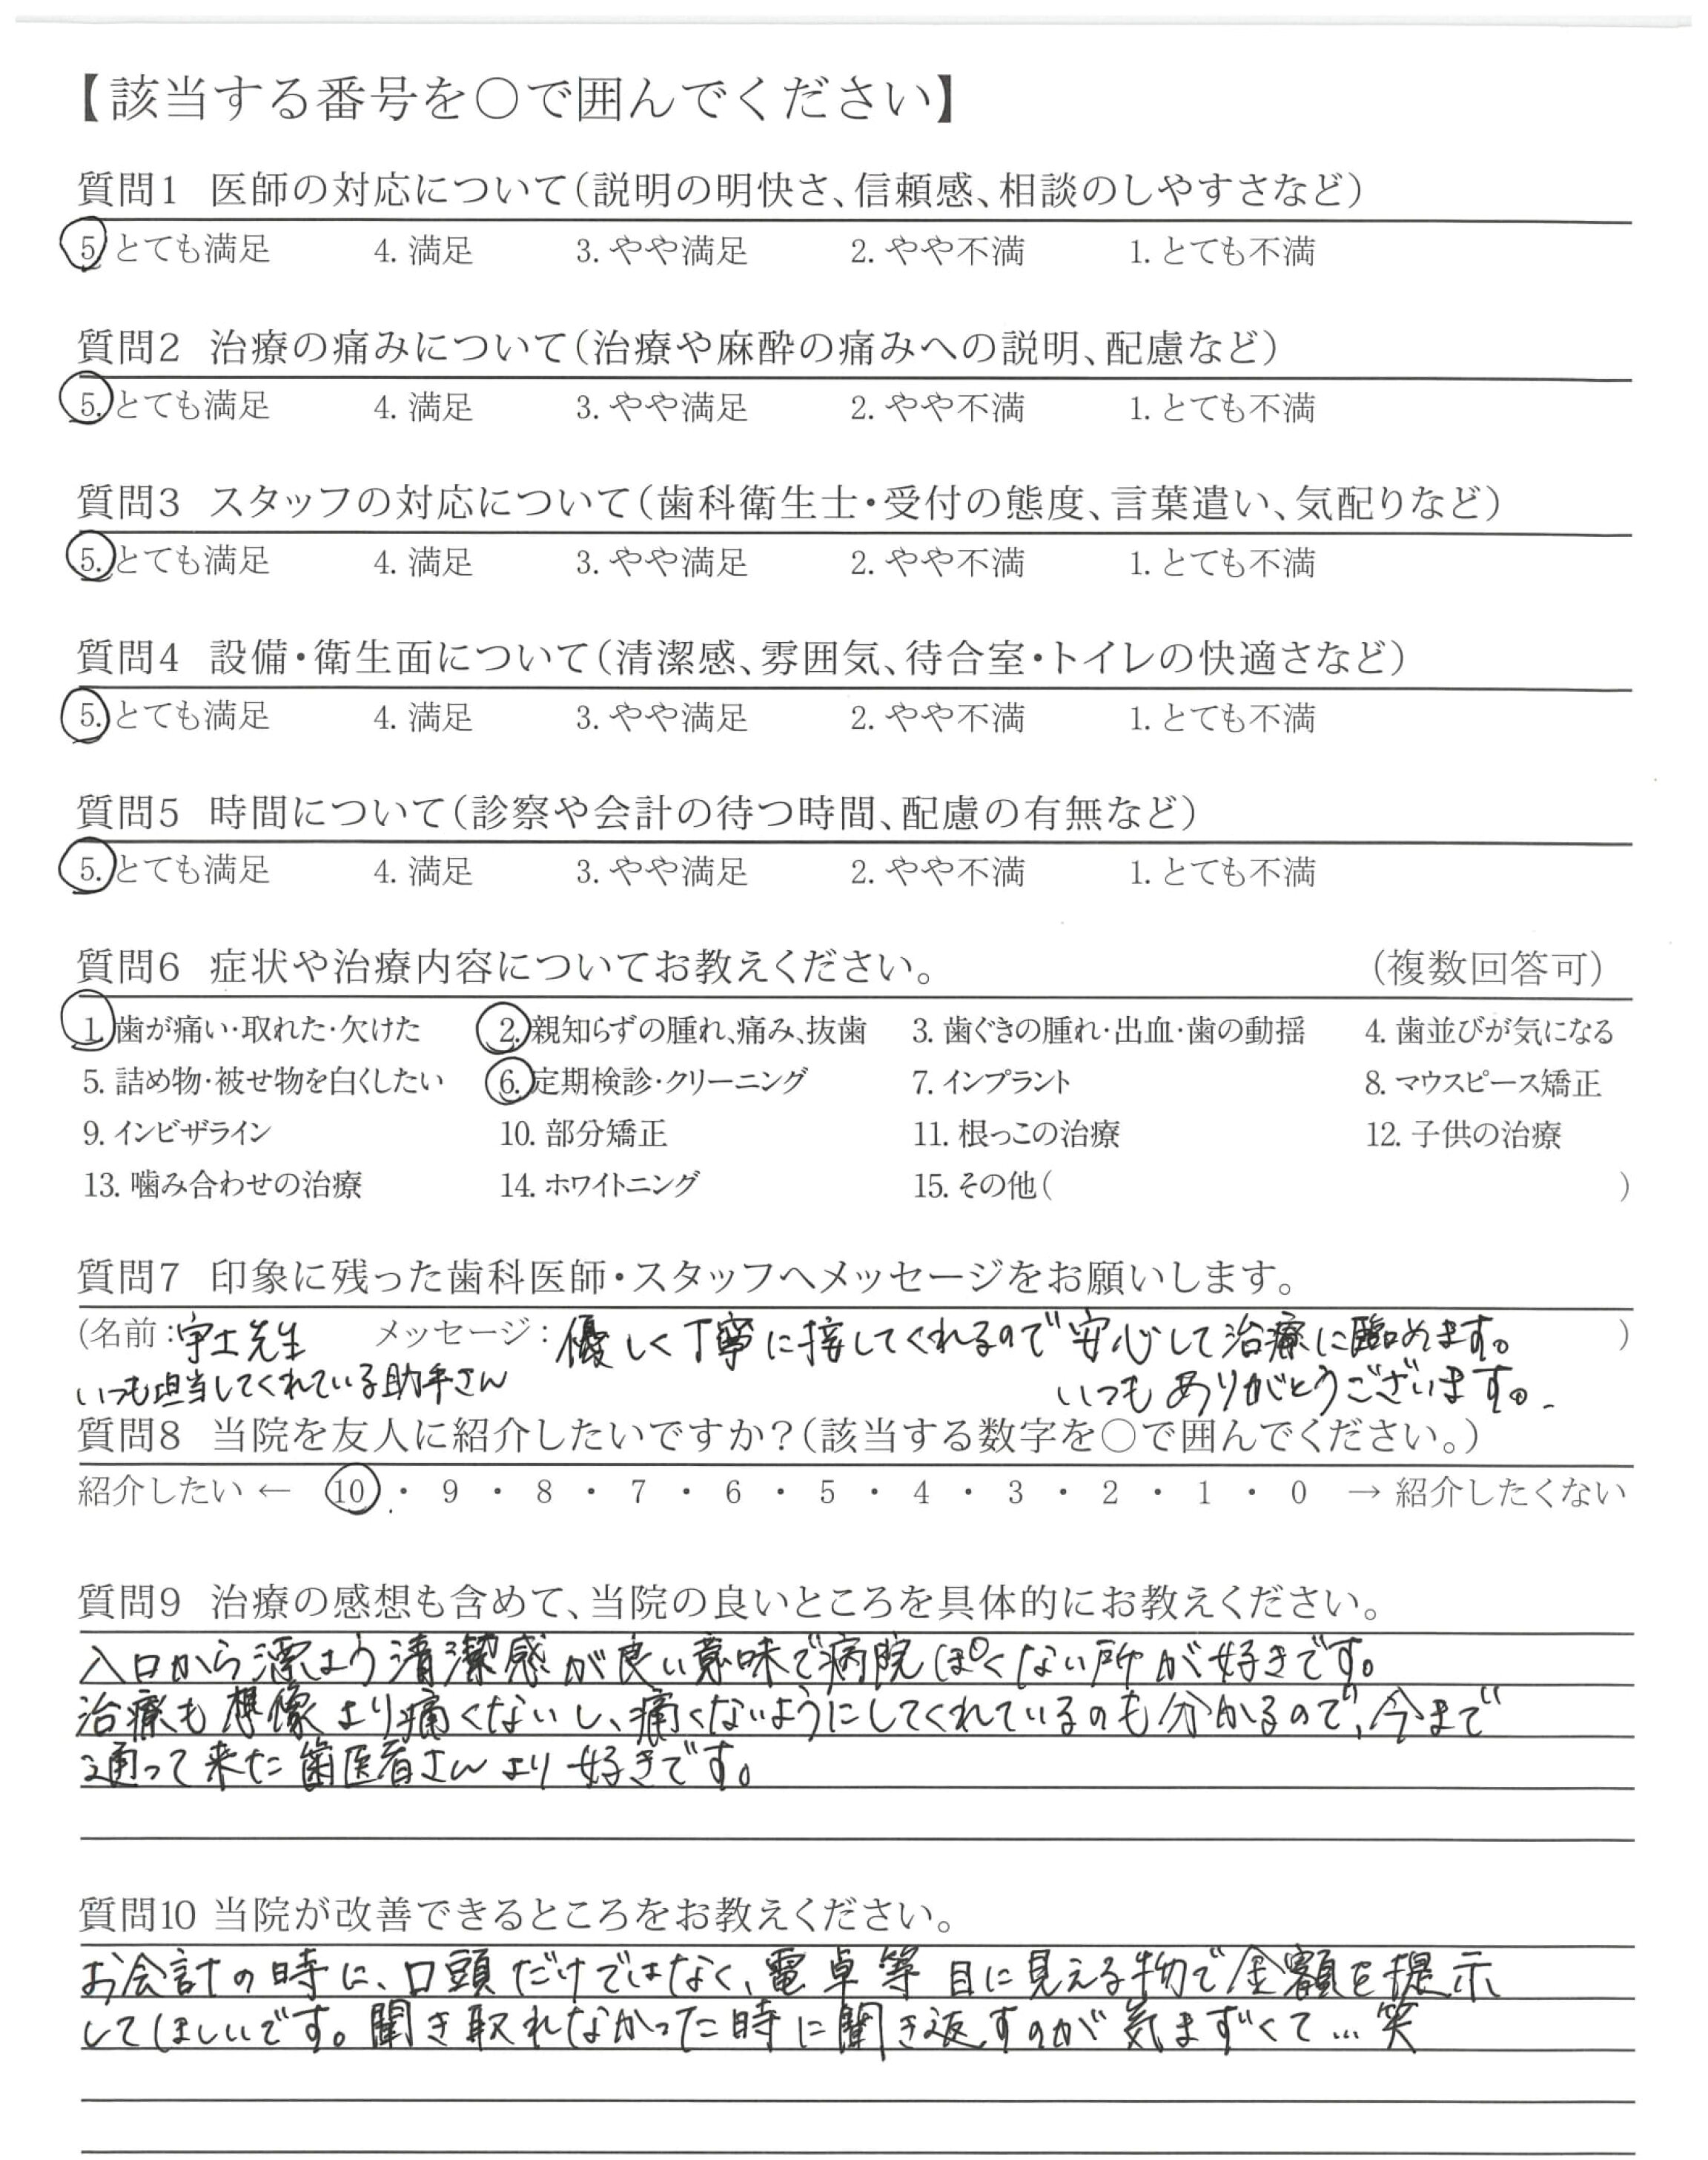 【該当する番号を○で囲んでください】
質問1 医師の対応について(説明の明快さ、信頼感、相談のしやすさなど)
5. とても満足 4. 満足 3. やや満足 2. やや不満 1. とても不満
質問2 治療の痛みについて(治療や麻酔の痛みへの説明、配慮など)
5. とても満足 4. 満足 3. やや満足 2. やや不満 1. とても不満
質問3 スタッフの対応について(歯科衛生士・受付の態度、言葉遣い、気配りなど)
5. とても満足 4. 満足 3. やや満足 2. やや不満 1. とても不満
質問4 設備・衛生面について(清潔感、雰囲気、待合室・トイレの快適さなど)
5. とても満足 4. 満足 3. やや満足 2. やや不満 1. とても不満
質問5 時間について(診察や会計の待つ時間、配慮の有無など)
5. とても満足 4. 満足 3. やや満足 2. やや不満 1. とても不満
質問6 症状や治療内容についてお教えください。 (複数回答可)
1. 歯が痛い・取れた・欠けた 2. 親知らずの腫れ、痛み、抜歯 3. 歯ぐきの腫れ・出血・歯の動揺 4. 歯並びが気になる
5. 詰め物・被せ物を白くしたい 6. 定期検診・クリーニング 7. インプラント 8. マウスピース矯正
9. インビザライン 10. 部分矯正 11. 根っこの治療 12. 子供の治療
13. 噛み合わせの治療 14. ホワイトニング 15. その他( )
質問7 印象に残った歯科医師・スタッフへメッセージをお願いします。
(名前:宇土先生 メッセージ:優しく丁寧に接してくれるので安心して治療に臨めます。 )
いつも担当してくれている助手さん いつもありがとうございます。
質問8 当院を友人に紹介したいですか?(該当する数字を○で囲んでください。)
紹介したい ← 10 ・ 9 ・ 8 ・ 7 ・ 6 ・ 5 ・ 4 ・ 3 ・ 2 ・ 1 ・ 0 → 紹介したくない
質問9 治療の感想も含めて、当院の良いところを具体的にお教えください。
入口から漂よう清潔感が良い意味で病院ぽくない所が好きです。
治療も想像より痛くないし、痛くないようにしてくれているのも分かるので、今まで
通って来た歯医者さんより好きです。
質問10 当院が改善できるところをお教えください。
お会計の時に、口頭だけではなく、電卓等目に見える物で金額を提示
してほしいです。聞き取れなかった時に聞き返すのが気まずくて…笑